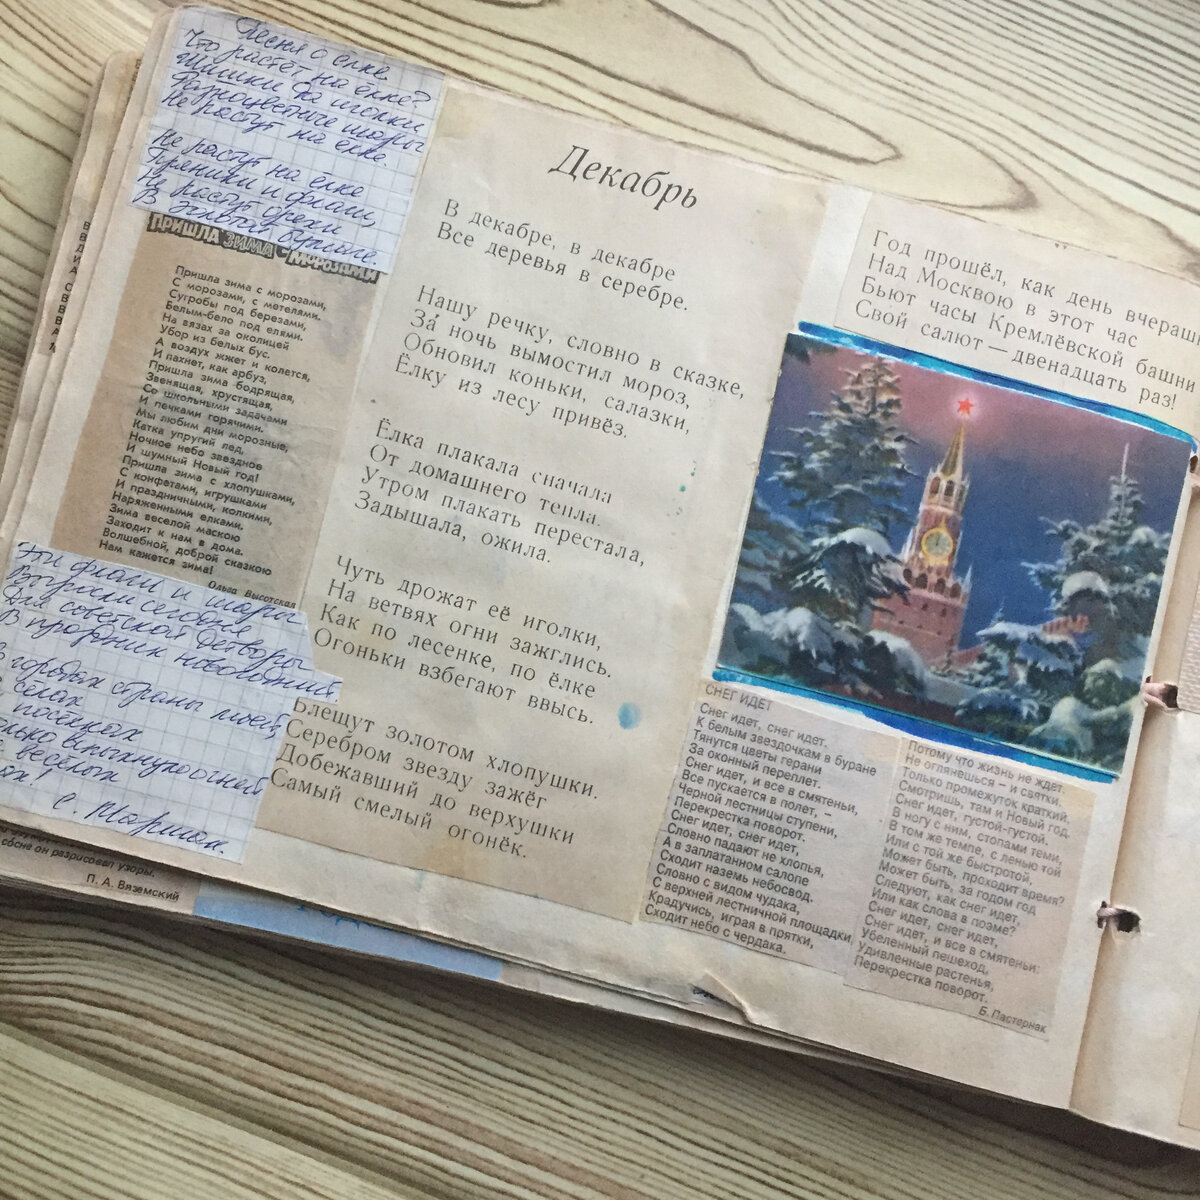 Песня о ёлке.
Что растёт на ёлке?
Шишки да иголки
Разноцветные шары
Не растут на ёлке.
Не растут на ёлке
Пряники и флаги,
Не растут орехи
В золотой бумаге.
ПРИШЛА ЗИМА С МОРОЗАМИ
Пришла зима с морозами,
С морозами, с метелями.
Сугробы под березами,
Белым-бело под елями.
На вязах за околицей
Убор из белых бус.
А воздух жжет и колется,
И пахнет, как арбуз,
Пришла зима бодрящая,
Звенящая, хрустящая,
Со школьными задачами
И печками горячими.
Мы любим дни морозные,
Катка упругий лед,
Ночное небо звездное
И шумный Новый год!
Пришла зима с хлопушками,
С конфетами, игрушками
И праздничными, колкими,
Наряженными елками.
Зима веселой маскою
Заходит к нам в дома.
Волшебной, доброй сказкою
Нам кажется зима!
Ольга Высотская
Эти флаги и шары
Выросли сегодня
Для советской детворы
В праздник новогодний
В городах страны моей,
селах
посёлках
Столько вспыхнуло огней
весёлых
С. Маршак.
сосне он разрисовал узоры.
П. А. Вяземский
Декабрь
В декабре, в декабре
Все деревья в серебре.
Нашу речку, словно в сказке,
За ночь вымостил мороз,
Обновил коньки, салазки,
Ёлку из лесу привёз.
Ёлка плакала сначала
От домашнего тепла.
Утром плакать перестала,
Задышала, ожила.
Чуть дрожат её иголки,
На ветвях огни зажглись.
Как по лесенке, по ёлке
Огоньки взбегают ввысь.
Блещут золотом хлопушки.
Серебром звезду зажёг
Добежавший до верхушки
Самый смелый огонёк.
Год прошёл, как день вчерашн
Над Москвою в этот час
Бьют часы Кремлёвской башни
Свой салют — двенадцать раз!
СНЕГ ИДЕТ
Снег идет, снег идет,
К белым звездочкам в буране
Тянутся цветы герани
За оконный переплет.
Снег идет, и все в смятеньи,
Все пускается в полет, –
Черной лестницы ступени,
Перекрестка поворот.
Снег идет, снег идет,
Словно падают не хлопья,
А в заплатанном салопе
Сходит наземь небосвод.
Словно с видом чудака,
С верхней лестничной площадки,
Крадучись, играя в прятки,
Сходит небо с чердака.
Потому что жизнь не ждет.
Не оглянешься – и святки.
Только промежуток краткий,
Смотришь, там и Новый год.
Снег идет, густой-густой.
В ногу с ним, стопами теми,
В том же темпе, с ленью той
Или с той же быстротой,
Может быть, проходит время?
Может быть, за годом год
Следуют, как снег идет,
Или как слова в поэме?
Снег идет, снег идет,
Снег идет, и все в смятеньи:
Убеленный пешеход,
Удивленные растенья,
Перекрестка поворот.
Б. Пастернак